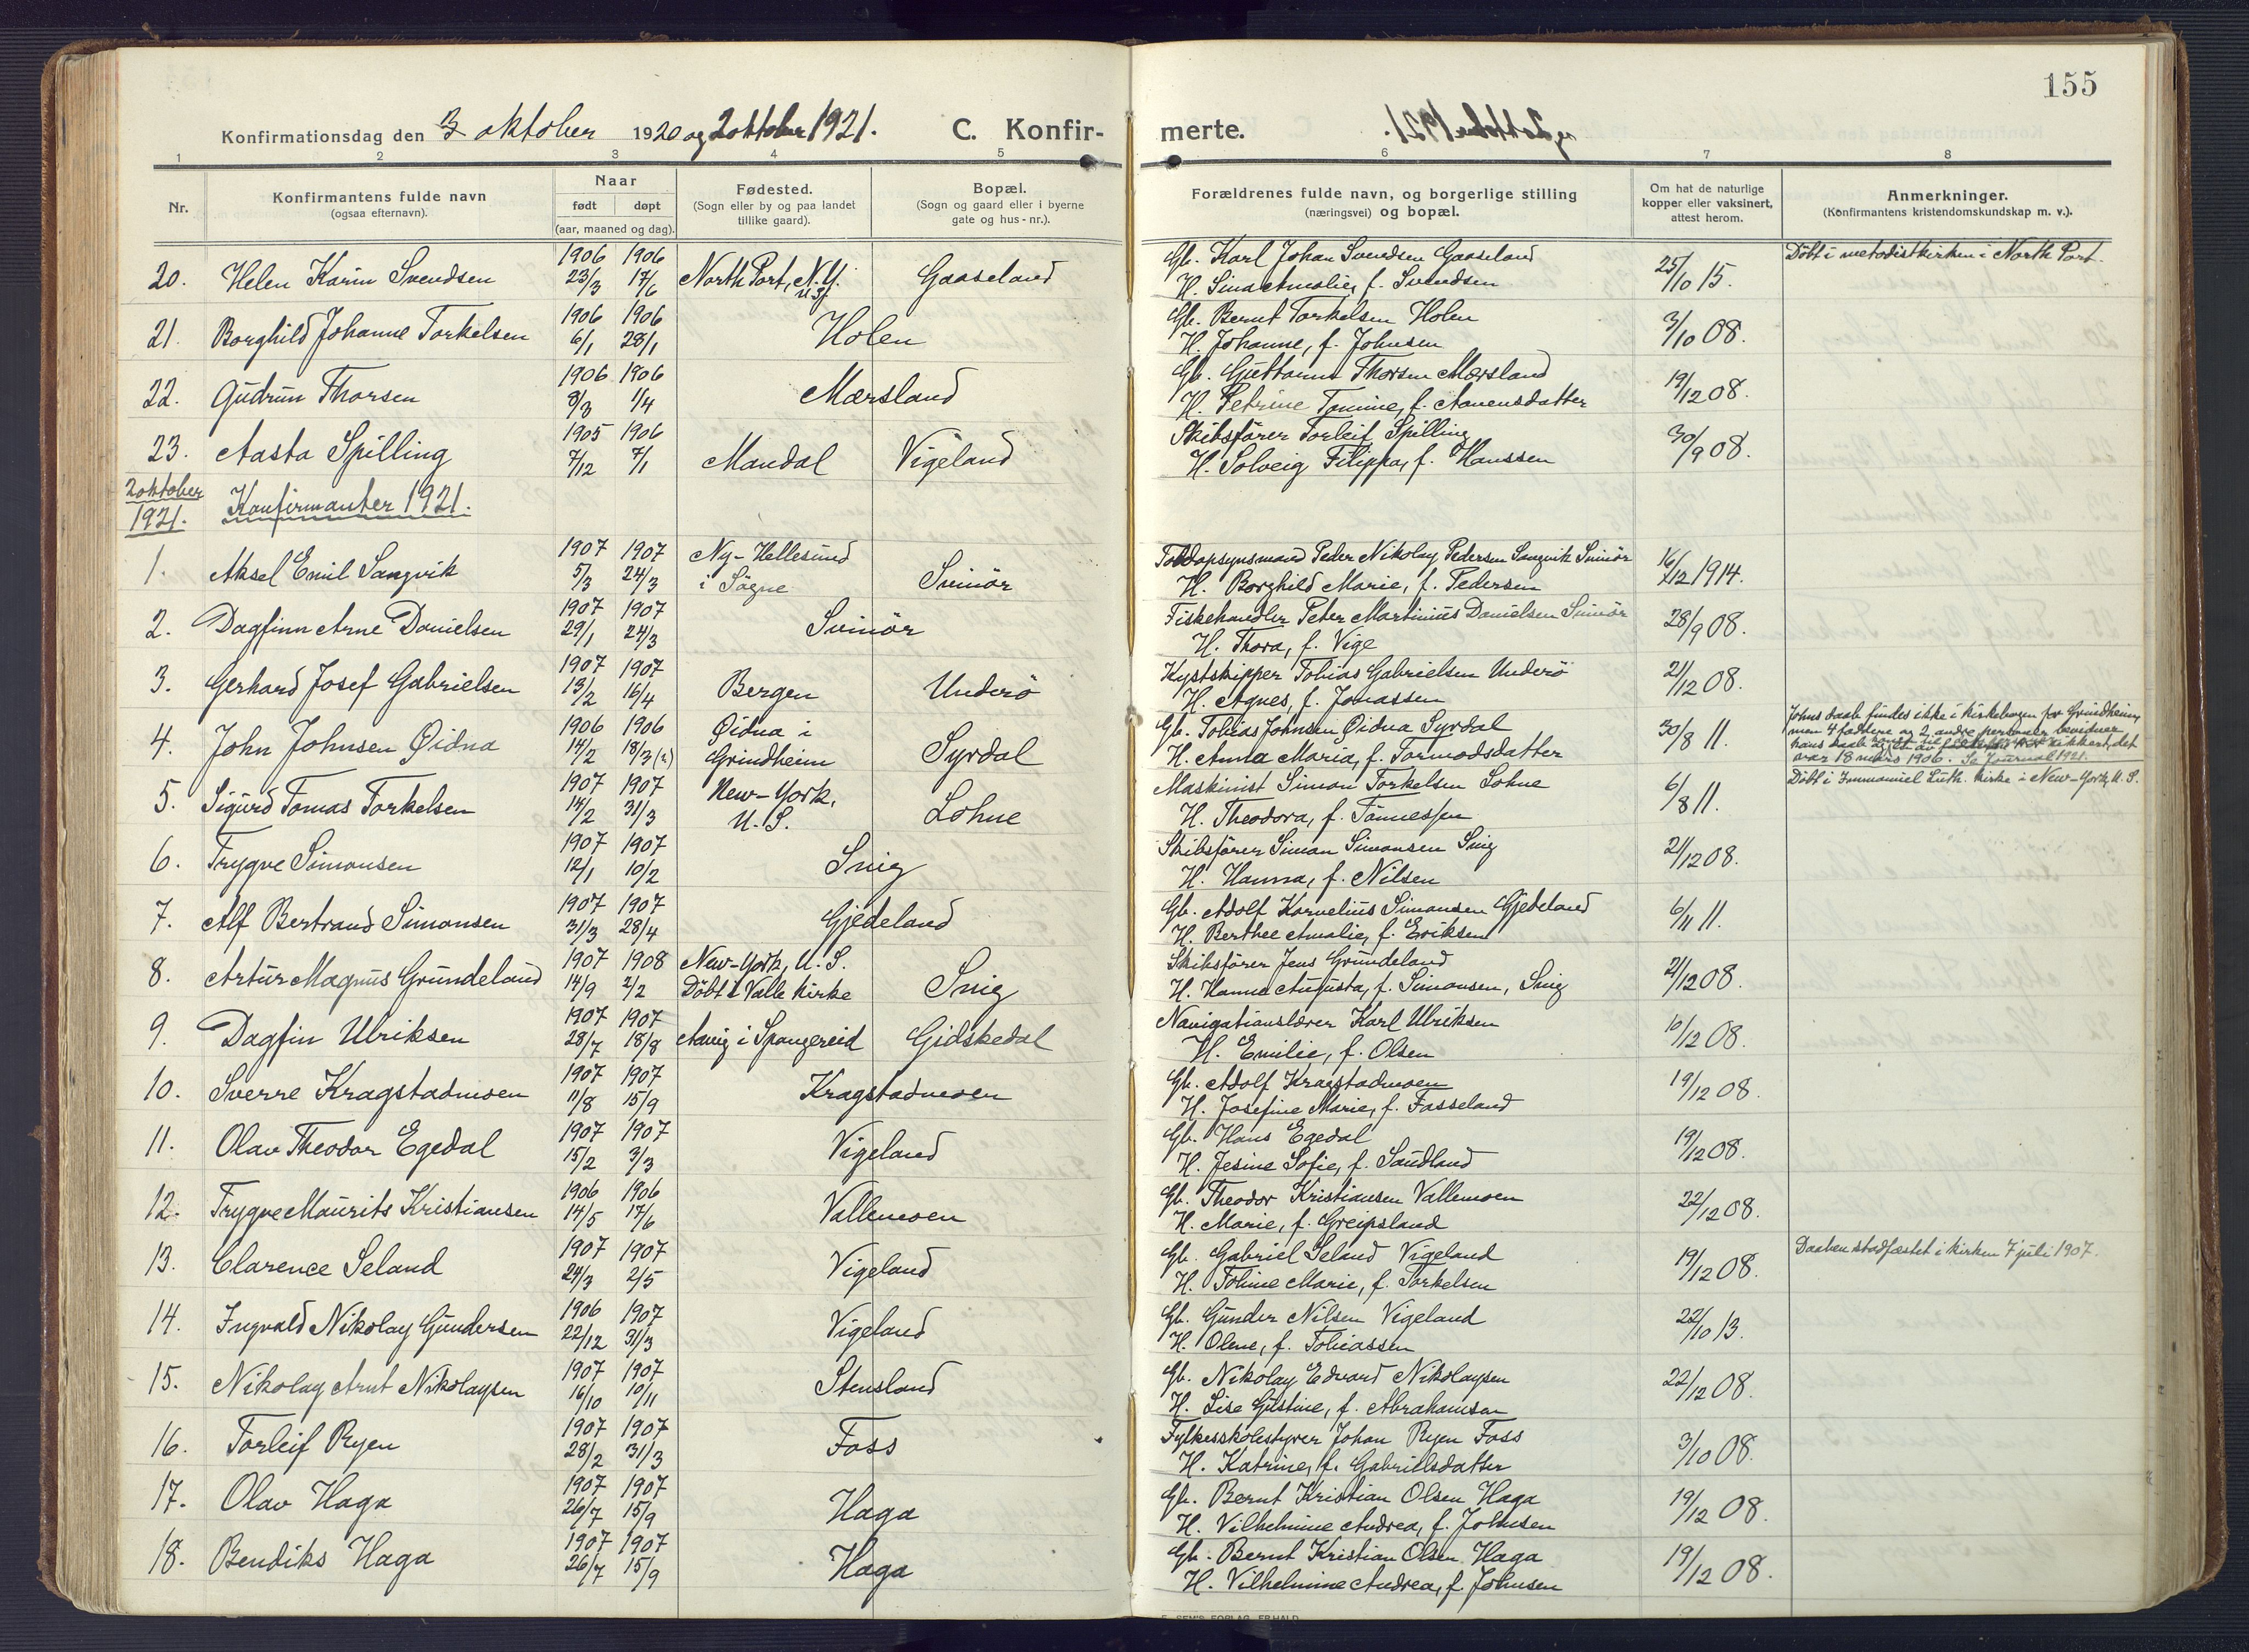 155
Konfirmationsdag den 3 oktober 1920 og 2 oktober 1921. C. Konfirmerte.
1 2 3 4 5 6 7 8
Nr. Konfirmantens fulde navn (ogsaa efternavn). Naar født døpt (aar, maaned og dag). Fødested. (Sogn eller by og paa landet tillike gaard). Bopæl. (Sogn og gaard eller i byerne gate og hus-nr.). Forældrenes fulde navn, og borgerlige stilling (næringsvei) og bopæl. Om hat de naturlige kopper eller vaksinert, attest herom. Anmerkninger. (Konfirmantens kristendomskundskap m. v.).
20. Helen Karin Svendsen 1906 23/3 1906 17/6 North Port, N.Y. U.S. Gaaseland Gb. Karl Johan Svendsen Gaaseland
H. Sina Amalie, f. Svendsen 25/10 15. Döbt i metodistkirken i North Port.
21. Borghild Johanne Torkelsen 1906 6/1 1906 28/1 Holen Gb. Bernt Torkelsen Holen
H. Johanne, f. Johnsen 3/10 08.
22. Gudrun Thorsen 1906 8/3 1906 1/4 Mærsland Gb. Guttorm Thorsen Mærsland
H. Petrine Tomine, f. Aanensdatter 19/12 08.
23. Aasta Spilling 1905 7/12 1906 7/1 Mandal Vigeland Skibsfører Torleif Spilling
H. Solveig Filippa, f. Hanssen 30/9 08.
2 oktober 1921. Konfirmanter 1921.
1. Aksel Emil Sangvik 1907 5/3 1907 24/3 Ny-Hellesund i Sögne Svinör Toldopsynsmand Peder Nikolay Pedersen Sangvik Svinör
H. Borghild Marie, f. Pedersen 16/12 1914.
2. Dagfinn Arne Danielsen 1907 29/1 1907 24/3 Svinör Fiskehandler Peter Martinius Danielsen Svinör
H. Thora, f. Vige 28/9 08.
3. Gerhard Josef Gabrielsen 1907 13/2 1907 16/4 Bergen Underö Kystskipper Tobias Gabrielsen Underö
H. Agnes, f. Jonassen 21/12 08.
4. John Johnsen Øidna 1906 14/2 1906 18/3 Øidna i Grindheim Syrdal Gb. Tobias Johnsen Øidna Syrdal
H. Anna Maria, f. Tormodsdatter 30/8 11. Johns daab findes ikke i kirkebogen for Grindheim, men 4 faddere og 2 andre personer bevidner
hans daab det var 18 mars 1906. Se Journal 1921.
5. Sigurd Tomas Torkelsen 1907 14/2 1907 31/3 New-York, U.S. Lohne Maskinist Simon Torkelsen Lohne
H. Theodora, f. Tönnessen 6/8 11. Döbt i Immanuel Luth. Kirke i New-York, U.S.
6. Trygve Simonsen 1907 12/1 1907 10/2 Snig Skibsfører Simon Simonsen Snig
H. Hanna, f. Nilsen 21/12 08.
7. Alf Bertrand Simonsen 1907 31/3 1907 28/4 Gjedeland Gb. Adolf Kornelius Simonsen Gjedeland
H. Berthee Amalie, f. Eriksen 6/11 11.
8. Artur Magnus Grundeland 1907 14/9 1908 2/2 New-York, U.S. Döbt i Valle kirke Snig Skibsfører Jens Grundeland
H. Hanna Augusta, f. Simonsen, Snig 21/12 08.
9. Dagfin Ulriksen 1907 28/7 1907 18/8 Aavig i Spangereid Gidskedal Navigationslærer Karl Ulriksen
H. Emilie, f. Olsen 10/12 08.
10. Sverre Kragstadmoen 1907 11/8 1907 15/9 Kragstadmoen Gb. Adolf Kragstadmoen
H. Josefine Marie, f. Fasseland 19/12 08.
11. Olav Theodor Egedal 1907 15/2 1907 3/3 Vigeland Gb. Hans Egedal
H. Jesine Sofie, f. Saudland 19/12 08.
12. Trygve Maurits Kristiansen 1906 14/5 1906 17/6 Vallemoen Gb. Theodor Kristiansen Vallemoen
H. Marie, f. Greipsland 22/12 08.
13. Clarence Seland 1907 24/3 1907 2/5 Vigeland Gb. Gabriel Seland Vigeland
H. Toline Marie, f. Torkelsen 19/12 08. Daaben stadfæstet i kirken 7 juli 1907.
14. Ingvald Nikolay Gundersen 1906 22/12 1907 31/3 Vigeland Gb. Gunder Nilsen Vigeland
H. Olene, f. Tobiassen 22/10 13.
15. Nikolay Arnt Nikolaysen 1907 16/10 1907 10/11 Stensland Gb. Nikolay Edvard Nikolaysen
H. Lise Gustine, f. Abrahamsen 22/12 08.
16. Torleif Ryen 1907 28/2 1907 31/3 Foss Fylkesskolestyrer Johan Ryen Foss
H. Katrine, f. Gabrielsdatter 3/10 08.
17. Olav Haga 1907 26/7 1907 15/9 Haga Gb. Bernt Kristian Olsen Haga
H. Vilhelmine Andrea, f. Johnsen 19/12 08.
18. Bendiks Haga 1907 26/7 1907 15/9 Haga Gb. Bernt Kristian Olsen Haga
H. Vilhelmine Andrea, f. Johnsen 19/12 08.